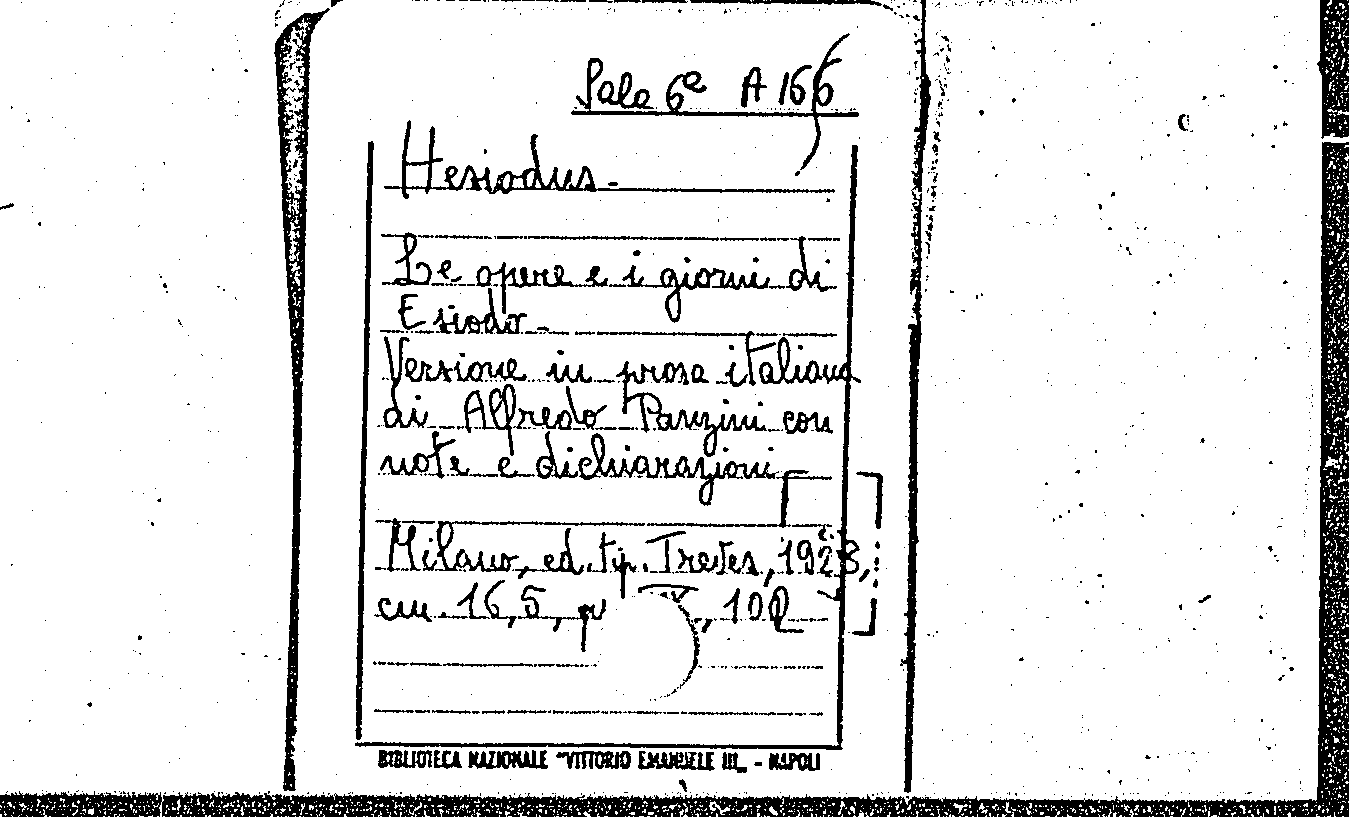 Sala 6ª A 166
Hesiodus.-
Le opere e i giorni di
Esiodo.-
Versione in prosa italiana
di Alfredo Panzini con
note e dichiarazioni
Milano, ed. tip. Treves, 1928,
cm. 16,5, , 102
BIBLIOTECA NAZIONALE "VITTORIO EMANUELE III„ - NAPOLI